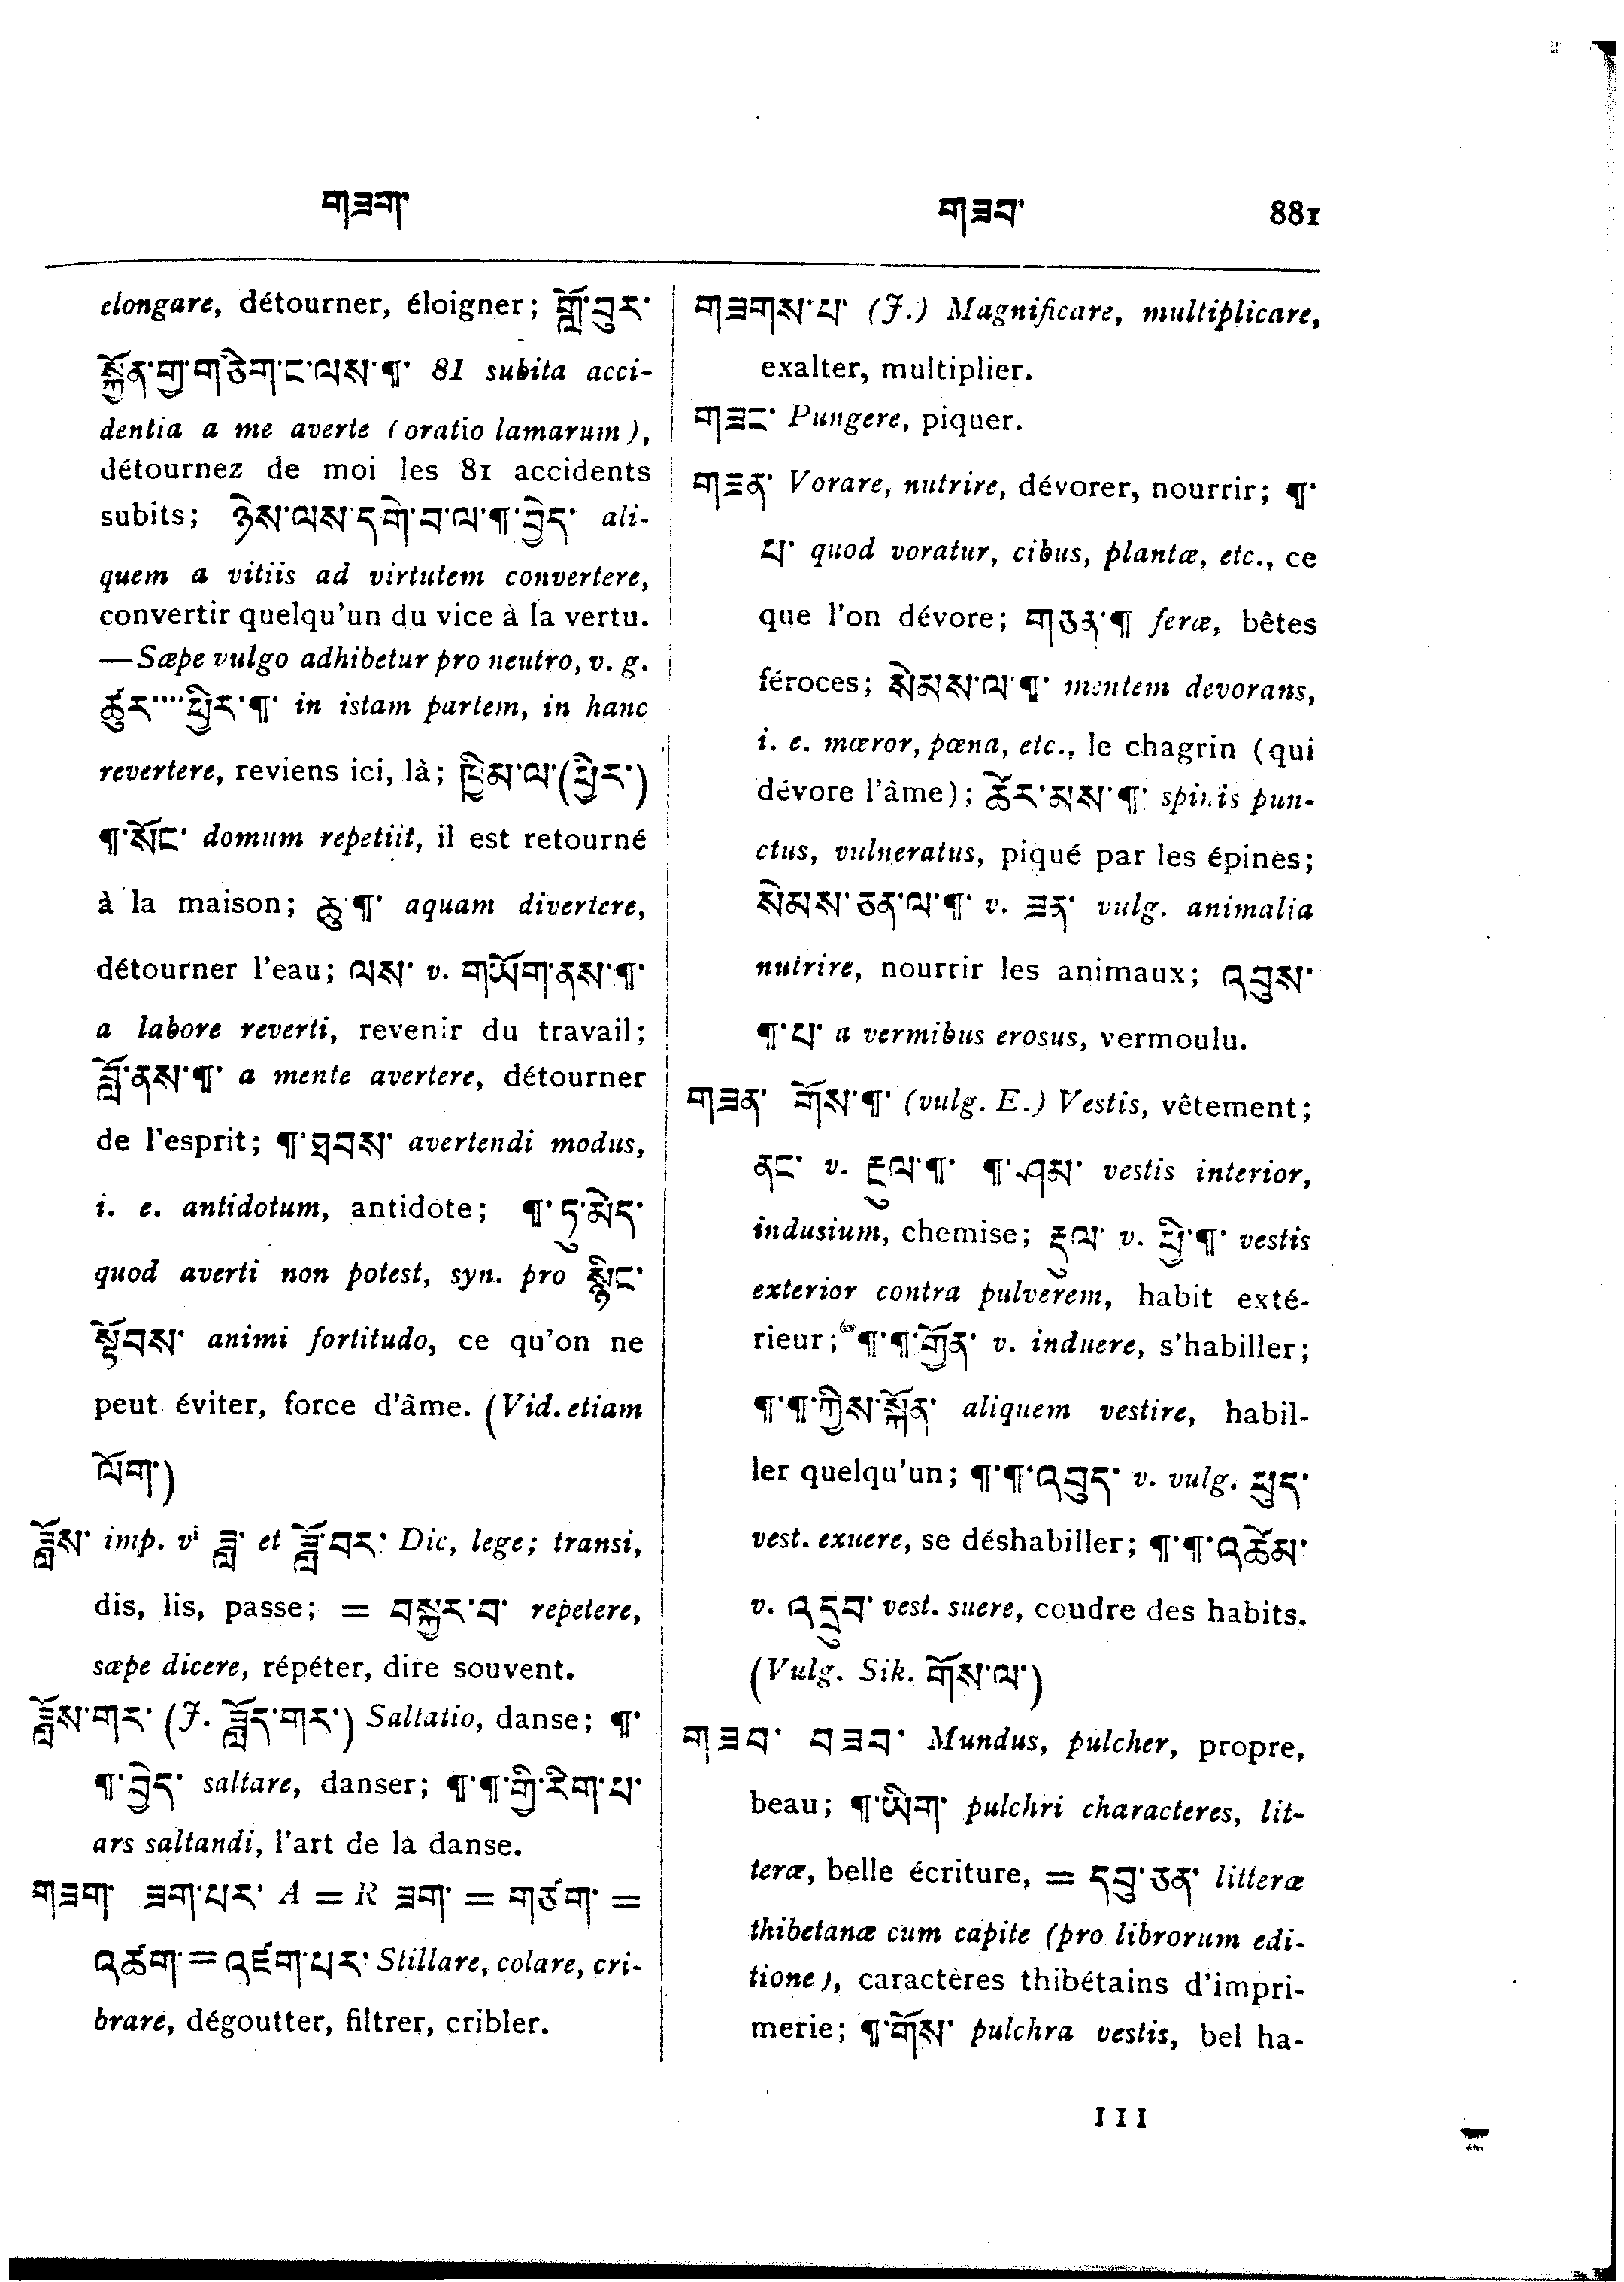 གཟག་
གཟབ་ 881
elongare, détourner, éloigner; གློ་བུར་
སྐྱོན་གྱ་གཅིག་ང་ལས་¶་ 81 subita acci-
dentia a me averte (oratio lamarum),
détournez de moi les 81 accidents
subits; ཉེས་ལས་དགེ་བ་ལ་¶་བྱེད་ ali-
quem a vitiis ad virtutem convertere,
convertir quelqu'un du vice à la vertu.
—Sæpe vulgo adhibetur pro neutro, v. g.
ཚུར་....ཕྱིར་¶་ in istam partem, in hanc
revertere, reviens ici, là; ཁྱིམ་ལ་(ཕྱིར་)
¶་སོང་ domum repetiit, il est retourné
à la maison; ཆུ་¶་ aquam divertere,
détourner l'eau; ལས་ v. གཡོག་ནས་¶་
a labore reverti, revenir du travail;
བློ་ནས་¶་ a mente avertere, détourner
de l'esprit; ¶་ཐབས་ avertendi modus,
i. e. antidotum, antidote; ¶་ཏུ་མེད་
quod averti non potest, syn. pro སྙིང་
སྟོབས་ animi fortitudo, ce qu'on ne
peut éviter, force d'âme. (Vid. etiam
ལོག་)
ཟློས་ imp. vⁱ ཟླ་ et ཟློ་བར་ Dic, lege; transi,
dis, lis, passe; = བསྐྱར་བ་ repetere,
sæpe dicere, répéter, dire souvent.
ཟློས་གར་ (J. ཟློད་གར་) Saltatio, danse; ¶་
¶་བྱེད་ saltare, danser; ¶་¶་གྱི་རིག་པ་
ars saltandi, l'art de la danse.
གཟག་ ཟག་པར་ A = R ཟག་ = གཙག་ =
འཚག་ = འཛག་པར་ Stillare, colare, cri-
brare, dégoutter, filtrer, cribler.
གཟགས་པ་ (J.) Magnificare, multiplicare,
exalter, multiplier.
གཟང་ Pungere, piquer.
གཟན་ Vorare, nutrire, dévorer, nourrir; ¶་
པ་ quod voratur, cibus, plantæ, etc., ce
que l'on dévore; གཅན་¶ feræ, bêtes
féroces; སེམས་ལ་¶་ mentem devorans,
i. e. mœror, pœna, etc., le chagrin (qui
dévore l'âme); ཚེར་མས་¶་ spinis pun-
ctus, vulneratus, piqué par les épines;
སེམས་ཅན་ལ་¶་ v. ཟན་ vulg. animalia
nutrire, nourrir les animaux; འབུས་
¶་པ་ a vermibus erosus, vermoulu.
གཟན་ གོས་¶་ (vulg. E.) Vestis, vêtement;
ནང་ v. རྔུལ་¶་ ¶་ཤམ་ vestis interior,
indusium, chemise; རྡུལ་ v. ཕྱི་¶་ vestis
exterior contra pulverem, habit exté-
rieur; ¶་¶་གྱོན་ v. induere, s'habiller;
¶་¶་ཀྱིས་སྐོན་ aliquem vestire, habil-
ler quelqu'un; ¶་¶་འབུད་ v. vulg. ཕུད་
vest. exuere, se déshabiller; ¶་¶་འཚེམ་
v. འདྲུབ་ vest. suere, coudre des habits.
(Vulg. Sik. གོས་ལ་)
གཟབ་ བཟབ་ Mundus, pulcher, propre,
beau; ¶་ཡིག་ pulchri characteres, lit-
teræ, belle écriture, = དབུ་ཅན་ litteræ
thibetanæ cum capite (pro librorum edi-
tione), caractères thibétains d'impri-
merie; ¶་གོས་ pulchra vestis, bel ha-
III